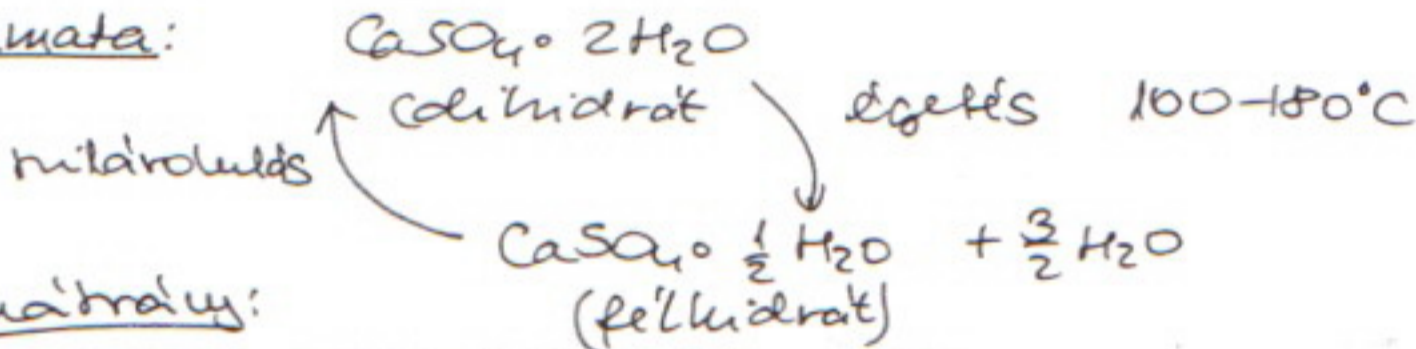 mata: CaSO₄ · 2H₂O
(dihidrát égetés 100-180°C
szilárdulás
CaSO₄ · ½ H₂O + 3/2 H₂O
hátrány: (félhidrát)